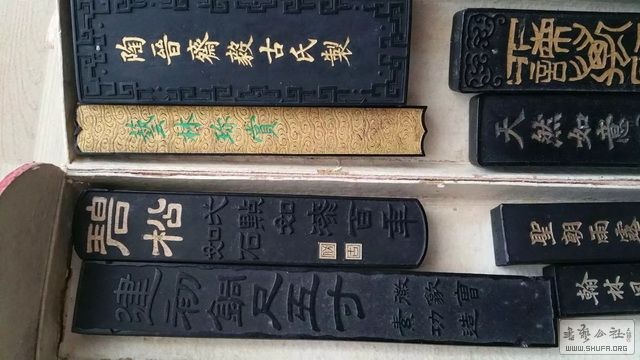 陶晉齋毅古氏製
藝林珍賞
天然如意
碧松
石點如漆百年
聖朝雨露
建初銅尺五寸
徽歙曹
素功造
翰林
書藝公社
WWW.SHUFA.ORG